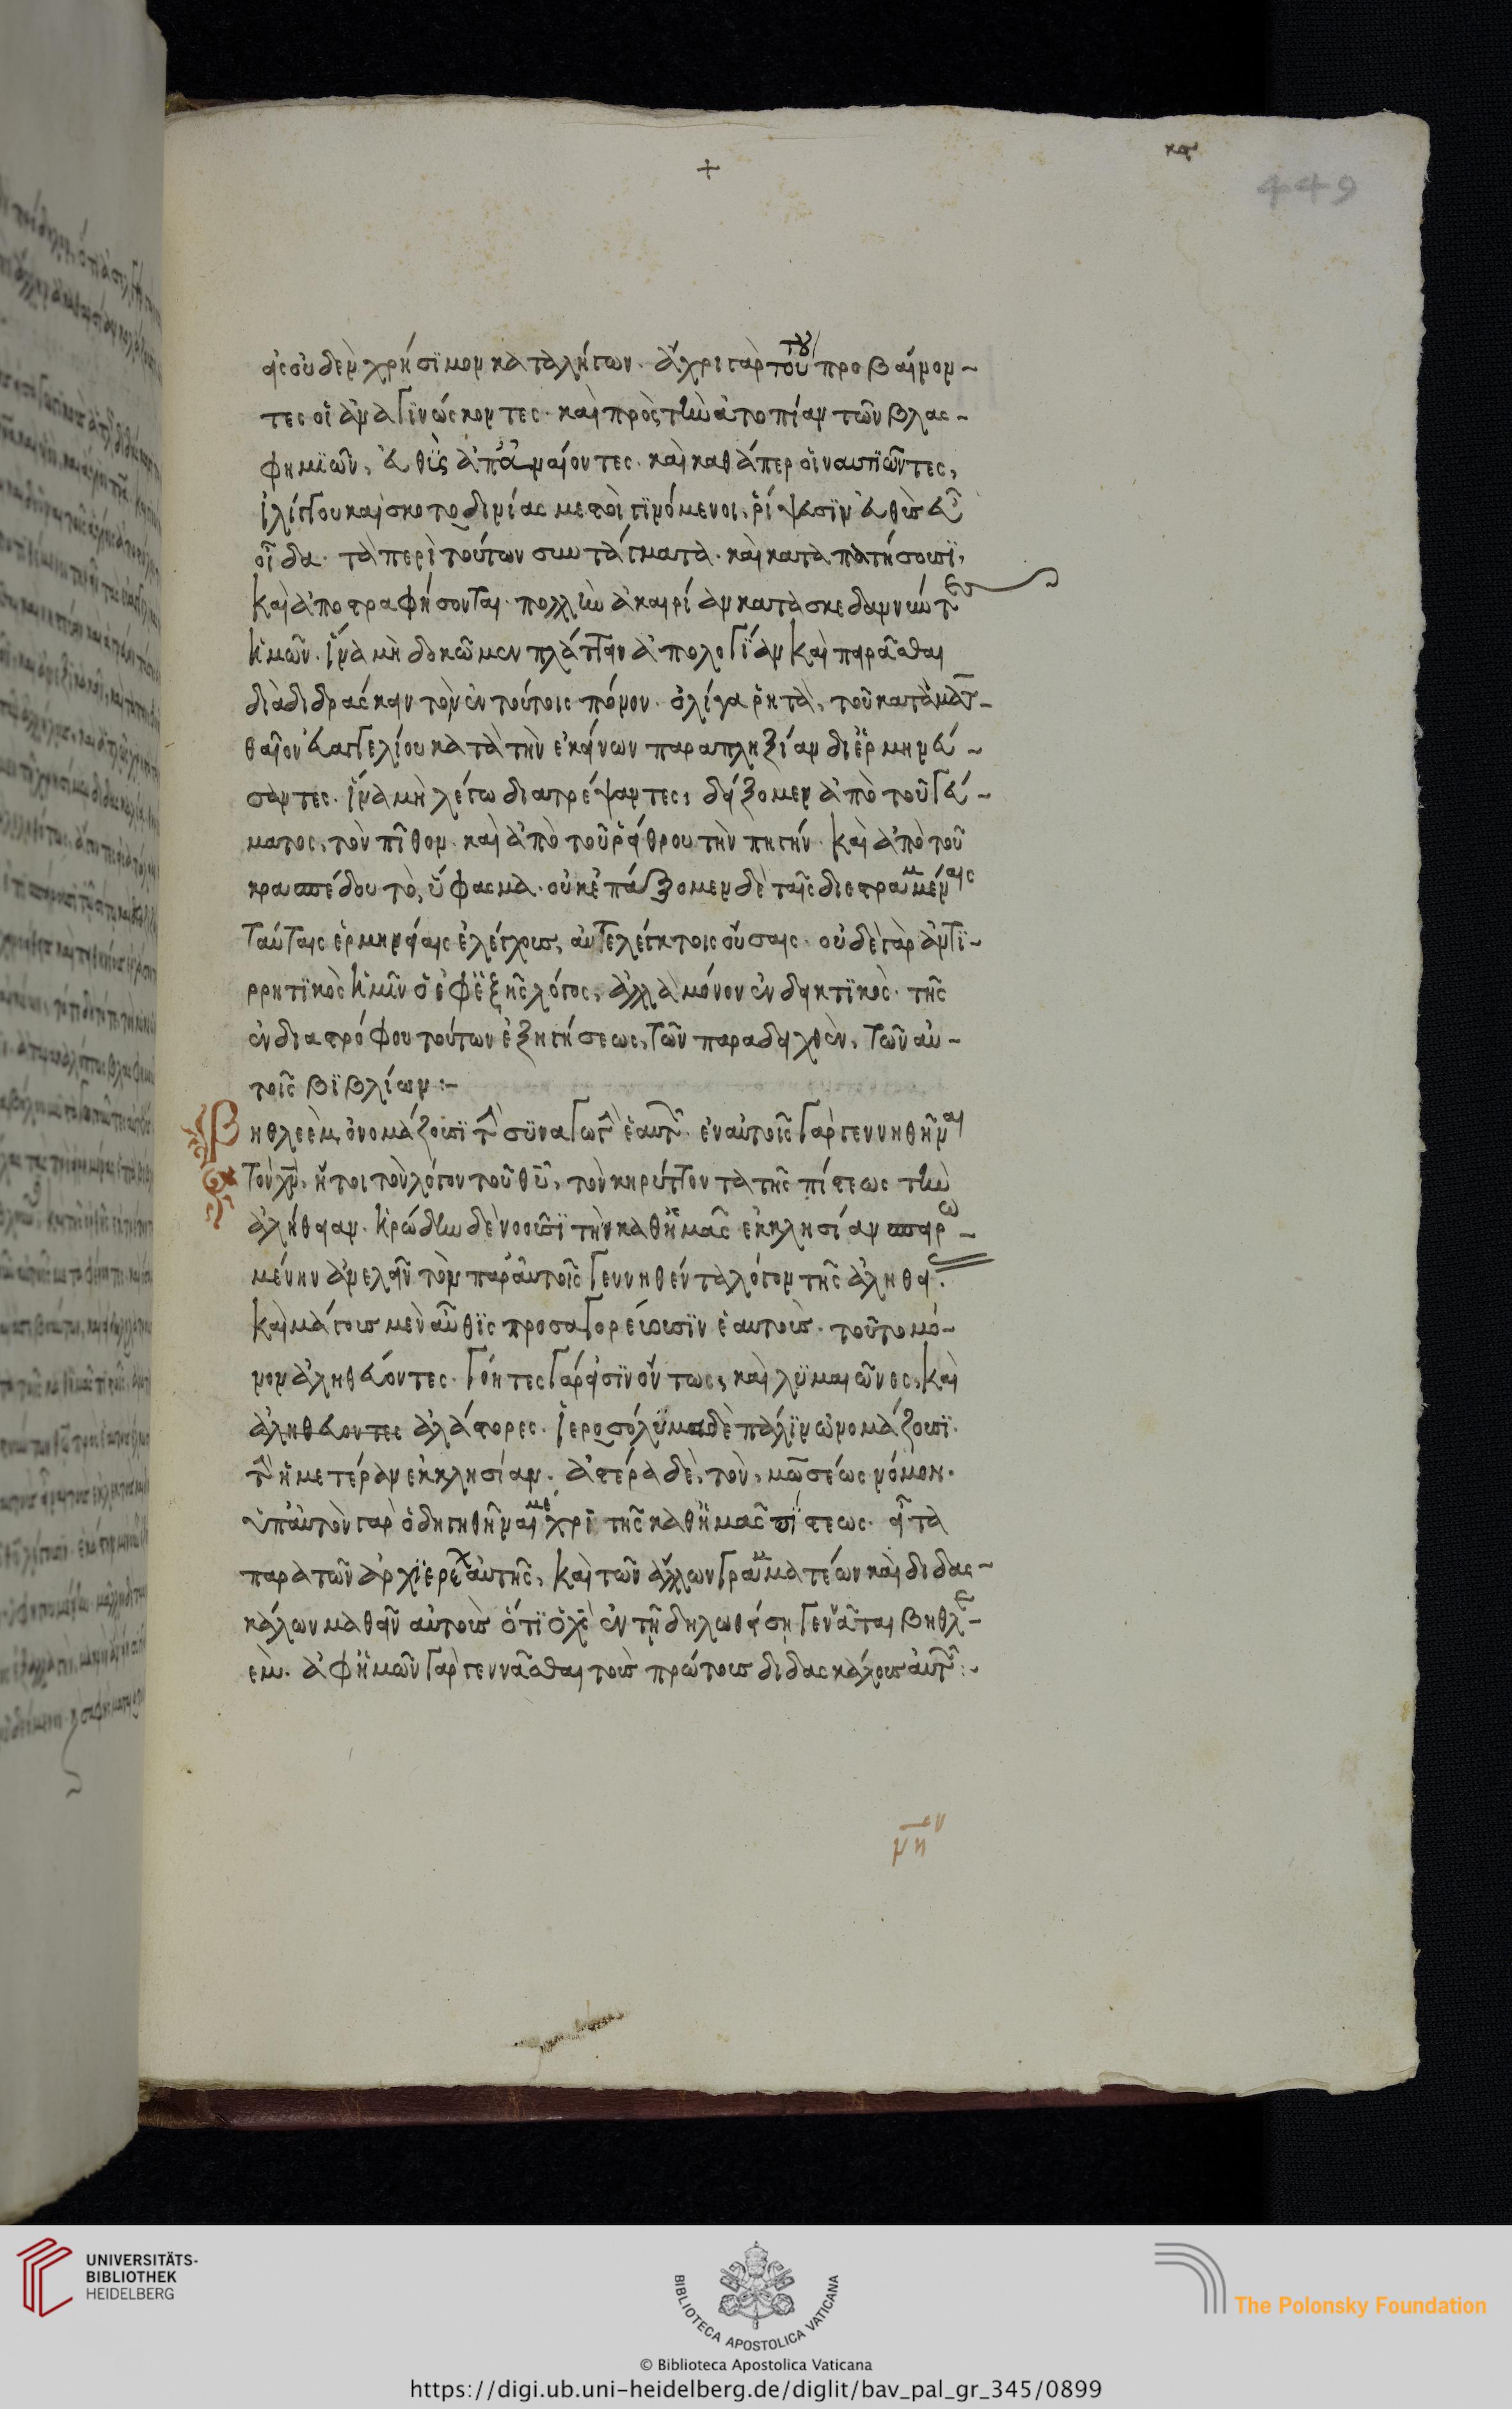 +
κα
449
εἰς οὐδὲν χρήσϊμον καταλήγων. ἄχρι γὰρ τοῦ του προβαίνον-
τες οἱ ἀναγϊνώσκοντες. καὶ πρὸς τὴν ἀτοπίαν τῶν βλας-
φημϊῶν, εὐθῒς ἀπαμαίοντες. καὶ καθάπερ οἱ ναυτϊῶντες,
ἰλίγγου καὶ σκοτοδινίας μετὰ γϊνόμενοι, ῥίψουσϊν εὐθὺς εὖ
οἶδα. τὰ περὶ τούτων συντάγματα. καὶ καταπατήσουσϊ,
καὶ ἀποστραφήσονται. πολλὴν ἀκαιρίαν κατασκεδαννύντες
ἡμῶν. ἵνα μὴ δοκῶμεν πλάττειν ἀπολογΐαν καὶ πειρᾶσθαι
διαδιδράσκειν τὸν ἐν τούτοις πόνον. ὀλίγα ῥητὰ, τοῦ κατὰ ματ-
θαῖον εὐαγγελίου κατὰ τὴν ἐκείνων παραπληξίαν διερμηνεύ-
σαντες. ἵνα μὴ λέγω διαστρέψαντες, δείξομεν ἀπὸ τοῦ γεύ-
ματος, τὸν πίθον. καὶ ἀπὸ τοῦ ῥείθρου τὴν πηγήν. καὶ ἀπὸ τοῦ
κρασπέδου τὸ ὕφασμα. οὐκ ἐπάξομεν δὲ ταῖς διεστραμμέναις
ταύταις ἑρμηνείαις ἐλέγχους, αὐτελέγκτοις οὔσαις. οὐδὲ γὰρ ἀντϊ-
ρρητϊκὸς ἡμῖν ὁ ἐφεξῆς λόγος, ἀλλὰ μόνον ἐνδεικτϊκὸς. τῆς
ἐνδιαστρόφου τούτων ἐξηγήσεως, τῶν παραδειχθέν, τῶν αὐ-
τοῖς βϊβλίων:-
Βηθλεὲμ, ὀνομάζουσϊ τὴν σϋναγωγὴν ἑαυτῶν. ἐν αὐτοῖς γὰρ γεννηθῆναι
τὸν χν, ἤτοι τὸν λόγον τοῦ θυ, τὸν κηρύττοντα τῆς πίστεως τὴν
ἀλήθειαν. ἡρώδην δὲ νοοῦσϊ τὴν καθ' ἡμᾶς ἐκκλησίαν πειρω-
μένην ἀνελεῖν τὸν παρ' αὐτοῖς γεννηθέντα λόγον τῆς ἀληθεί.
καὶ μάγους μὲν αὖθϊς προσαγορεύουσϊν ἑαυτοὺς. τοῦτο μό-
νον ἀληθεύοντες. γόητες γάρ εἰσϊν ὄντως, καὶ λϋμαιῶνες, καὶ
ἀληθεύοντες ἀλάστορες. ἱεροσόλϋμα δὲ πάλϊν ὠνομάζουσϊ.
τὴν ἡμετέραν ἐκκλησίαν. ἀστέρα δὲ, τὸν, μωσέως νόμον.
ὑπ' αὐτὸν γὰρ ὁδηγηθῆναι μέχρϊ τῆς καθ' ἡμᾶς πΐστεως. εἶτα
παρὰ τῶν ἀρχϊερέων αὐτῆς, καὶ τῶν ἄλλων γραμματέων καὶ διδας-
κάλων μαθεῖν αὐτοὺς ὅτϊ ὁ χς ἐν τῇ δηλωθείσῃ γεννᾶται βηθλε-
ὲμ. ἀφ' ἡμῶν γὰρ γεννᾶσθαι τοὺς πρώτους διδασκάλους αὐτῶν:-
UNIVERSITÄTS-
BIBLIOTHEK
HEIDELBERG
BIBLIOTECA APOSTOLICA VATICANA
The Polonsky Foundation
© Biblioteca Apostolica Vaticana
https://digi.ub.uni-heidelberg.de/diglit/bav_pal_gr_345/0899